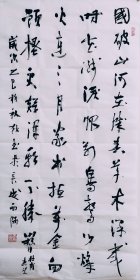 國破山河在城春草木深感
時花濺淚恨別鳥驚心烽
火連三月家書抵萬金白
頭搔更短渾欲不勝簪